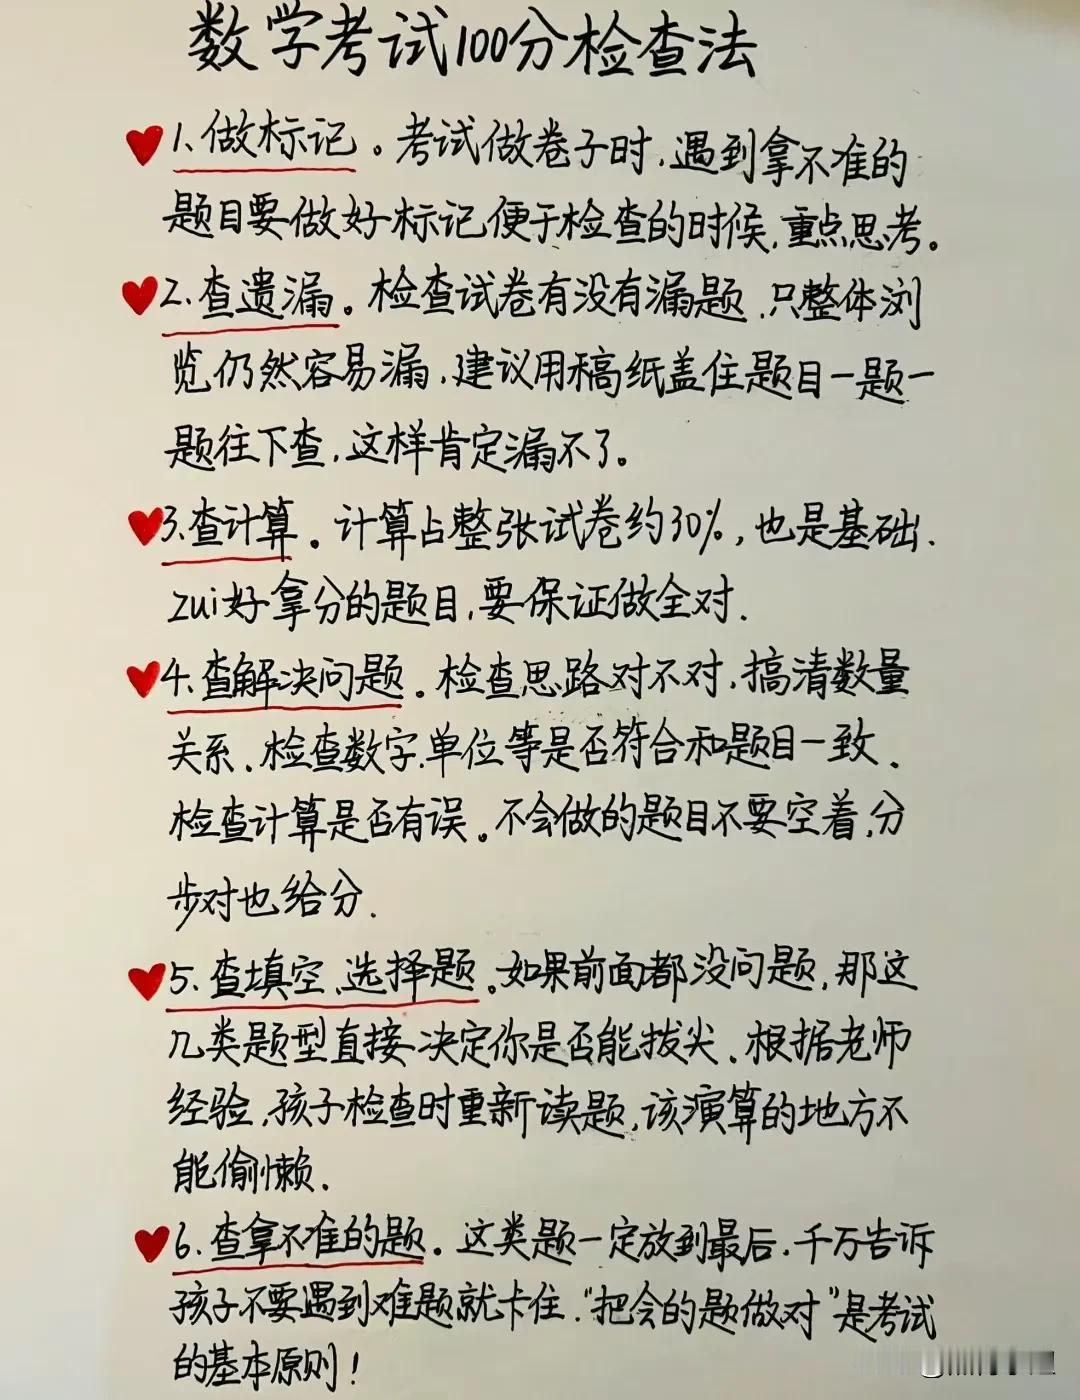 数学考试100分检查法
1、做标记。考试做卷子时，遇到拿不准的
题目要做好标记,便于检查的时候,重点思考。
2、查遗漏。检查试卷有没有漏题,只整体浏
览仍然容易漏,建议用稿纸盖住题目一题一
题往下查,这样肯定漏不了。
3.查计算。计算占整张试卷约30%,也是基础.
zui好拿分的题目,要保证做全对.
4.查解决问题。检查思路对不对,搞清数量
关系.检查数字.单位等是否符合和题目一致.
检查计算是否有误。不会做的题目不要空着,分
步对也给分.
5、查填空、选择题。如果前面都没问题,那这
几类题型直接决定你是否能拔尖.根据老师
经验,孩子检查时重新读题,该演算的地方不
能偷懒.
6、查拿不准的题。这类题一定放到最后.千万告诉
孩子不要遇到难题就卡住."把会的题做对"是考试
的基本原则!